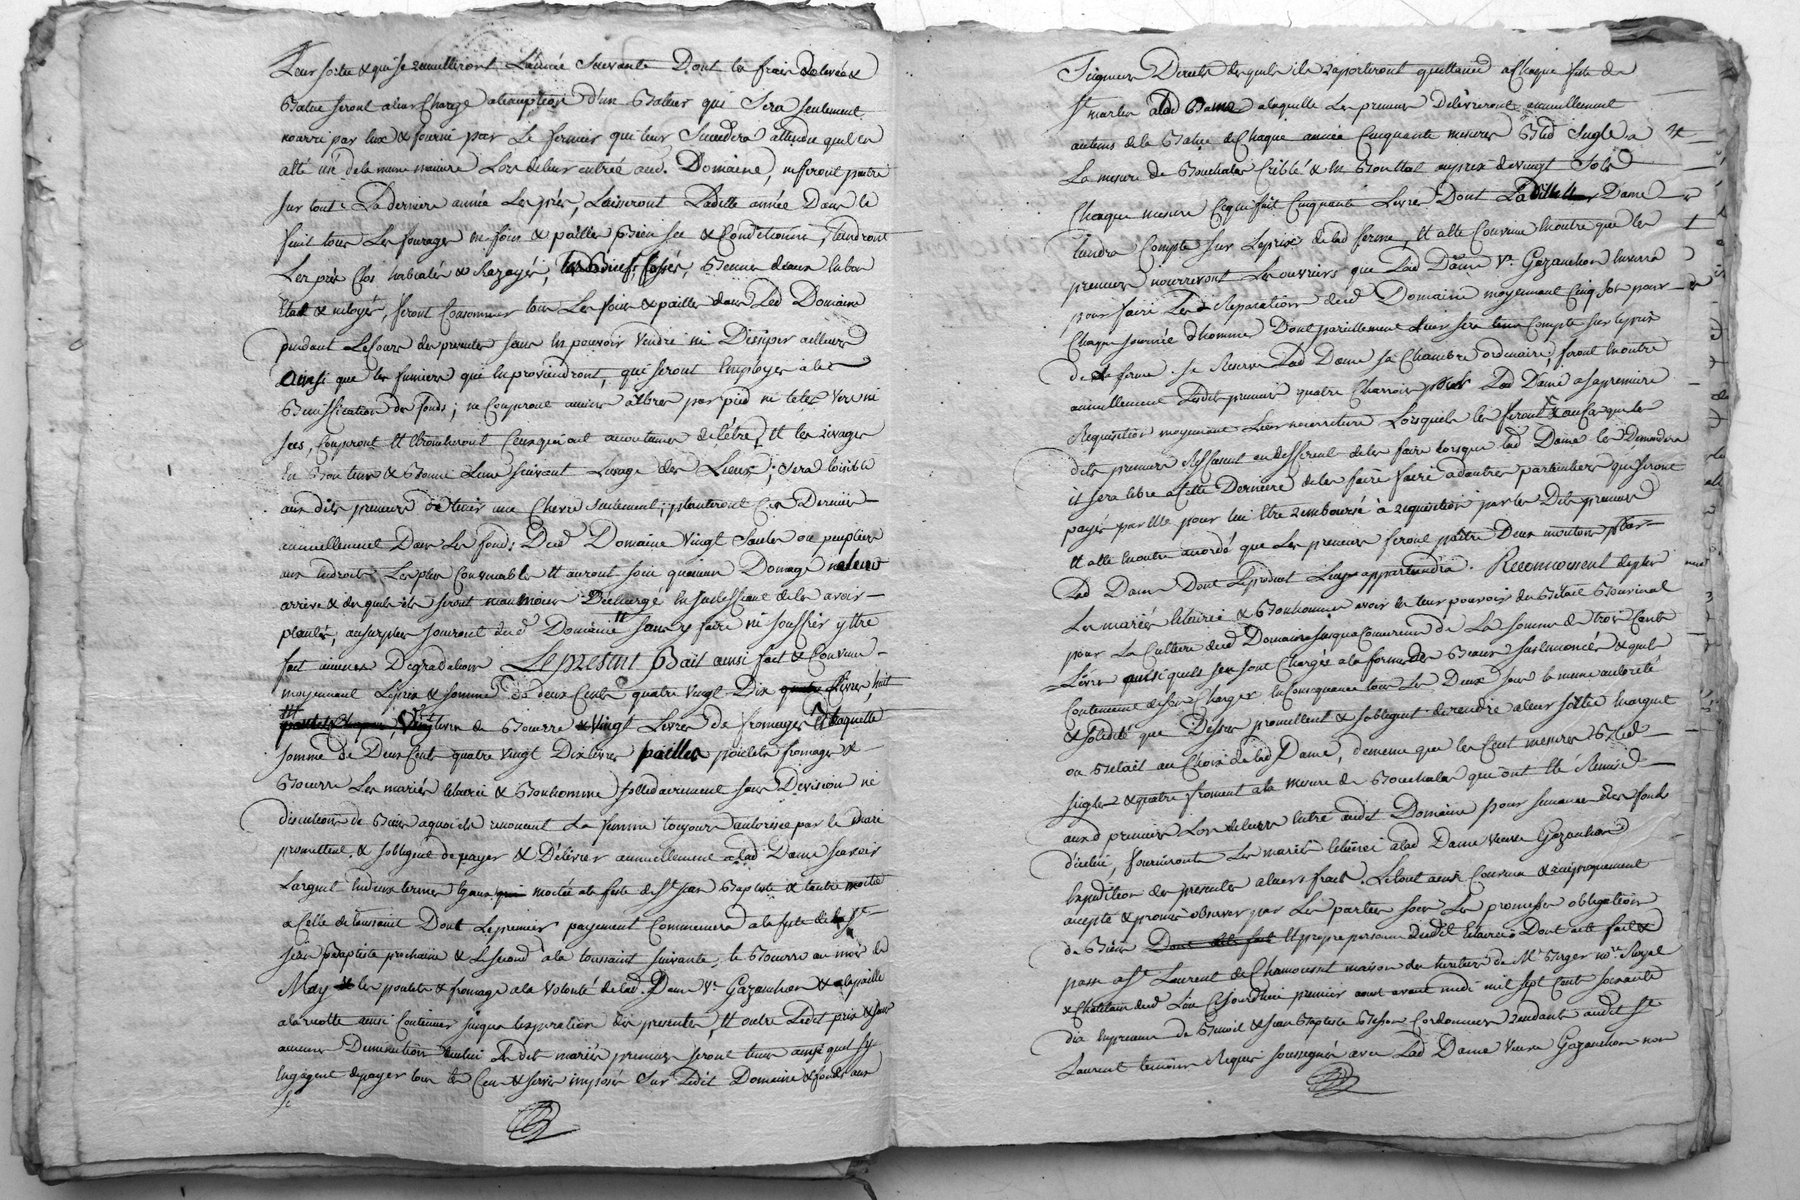 Leur sortie & qui se recueilliront L'année Suivante Dont les frais de levée &
Batue seront a leur Charge a l'exception d'un Bateur qui Sera seulement
nourri par Eux & fourni par Le fermier qui leur Succedera attendu quil en
a été usé de la meme maniere Lors de leur entrée aud. Domaine, ne feront paitre
sur tout La derniere année Les prés, Laisseront Ladite année Dans le
fenil tous Les fourages en foin & pailles Bien sec & Conditionné, tiendront
Les prés Clos &, les Biefs, fossés, tenus en bon
Etat & netoyés, feront Consommer tous Les foins & paille dans Led Domaine
pendant Le Cours des presentes sans en pouvoir Vendre ni Dissiper ailleurs
Ainsi que les fumiers qui en proviendront, qui seront Employés a la
Bonification des fonds; ne Couperont aucuns arbres par pied ni tetes Vers ni
secs, Couperont Et Ebrancheront Ceux qui ont accoutumé de l'être, Et les rivages
En Bon tems & Bonne Lune suivant Lusage des Lieux; sera loisible
aux dits preneurs de tenir une Chevre seulement; planteront Ces Derniers
annuellement Dans Les fonds Dud Domaine Vingt Saules ou peupliers
aux Endroits Les plus Convenables Et auront soin quaucun Domage ne leur
arrive & desquels ils seront neanmoins Déchargé en justifiant de les avoir
plantés, au surplus jouiront dud Domaine sans y faire ni souffrir y Etre
fait aucunes Dégradations Le present Bail ainsi fait & Convenu
moyennant Le prix & somme de deux Cents quatre Vingt Dix Livres, huit
Livres de Beurre Vingt Livres de fromages Et Laquelle
somme de Deux Cents quatre Vingt Dix livres pailles poulets fromages &
Beurre Les mariés & Bonhomme sollidairement sans Division ni
discution de Biens a quoi ils renoncent La femme toujours autorisée par le mari
promettent & sobligent de payer & Délivrer annuellement a lad Dame scavoir
L'argent En deux termes Egaux moitié a la feste de St jean Baptiste & l'autre moitié
a Celle de toussaint Dont Le premier payement Commencera a la feste de la St
jean Baptiste prochaine & Le second a la toussaint suivante, le Beurre au mois de
May & les poulets & fromage a la Volonté de lad. Dame Ve Gazanchon & la paille
a la recolte ainsi Continuer jusqua l'expiration des presentes, Et outre Ledit prix & sans
aucune Diminution d'icelui Les dits mariés preneurs seront tenus ainsi quil s'y
Engagent de payer tous les Cens & servis imposés Sur Ledit Domaine & fonds aux
Seigneurs Directs desquels ils raporteront quittance a Chaque feste de
St martin a lad Dame a laquelle Les preneurs Délivreront annuellement
au tems de la Batue de Chaque année Cinquante mesures Bled Seigle a
La mesure de Bouchalas Criblé & En Bon Etat au prix de vingt Sols
Chaque mesure Ce qui fait Cinquante Livres Dont Ladite Dame
tiendra Compte sur Le prix de lad ferme, Et a Eté Convenu En outre que les
preneurs nourriront Les ouvriers que Lad Dame Ve Gazanchon Enverra
pour faire Les Reparations dud Domaine moyennant Cinq sols pour
Chaque journée d'homme Dont pareillement leur sera Compte sur le prix
de la ferme. Se Reserve Lad Dame sa Chambre ordinaire, feront En outre
annuellement Lesdits preneurs quatre Charrois pour Lad Dame a sa premiere
Requisition moyennant Leur nourriture Lorsquils les feront & au Cas que les
dits preneurs refusent ou different de les faire Lorsque lad Dame les Demandera
il sera libre a Cette Derniere de les faire faire a d'autres particuliers qui seront
payés par Elle pour lui Etre remboursé à requisition par les Dits preneurs
Et a Eté En outre accordé que Les preneurs feront paitre Deux moutons par
Lad Dame Dont Le produit Lui appartiendra. Reconnoissent de plus
Les mariés & Bonhomme avoir En leur pouvoir du Bétail Bovinal
pour La Culture dud Domaine jusqua Concurrence de La somme de trois Cents
Livres quils sen sont Chargés a la forme des Beaux susenoncés & quils
Continuent de sen Charger En Consequence tous Les Deux sous la meme autorité
& solidité que Dessus promettent & sobligent de rendre a leur sortie En argent
ou Betail au Choix de lad Dame, de meme que les Cent mesures Bled
seigle & quatre froment a la mesure de Bouchalas qui ont Eté Remise
auxd preneurs Lors de leur Entrée audit Domaine pour semence des fonds
d'icelui, fourniront Les mariés a lad Dame veuve Gazanchon
Expedition des presentes a leurs frais. Le tout ainsi Convenu & reciproquement
accepté & promis observer par Les parties sous Les promesses obligations
de Biens Et propre personne Dudit Dont acte fait &
passé a St Laurent de Chamousset maison des heritiers de Me Berger nore Royal
& Chatelain dud Lieu Cejourdhui premier aout avant midi mil sept Cent soixante
dix En presence de Benoit & jean Baptiste Besson Cordonniers residants audit St
Laurent temoins Requis soussignés avec Lad Dame Veuve Gazanchon non